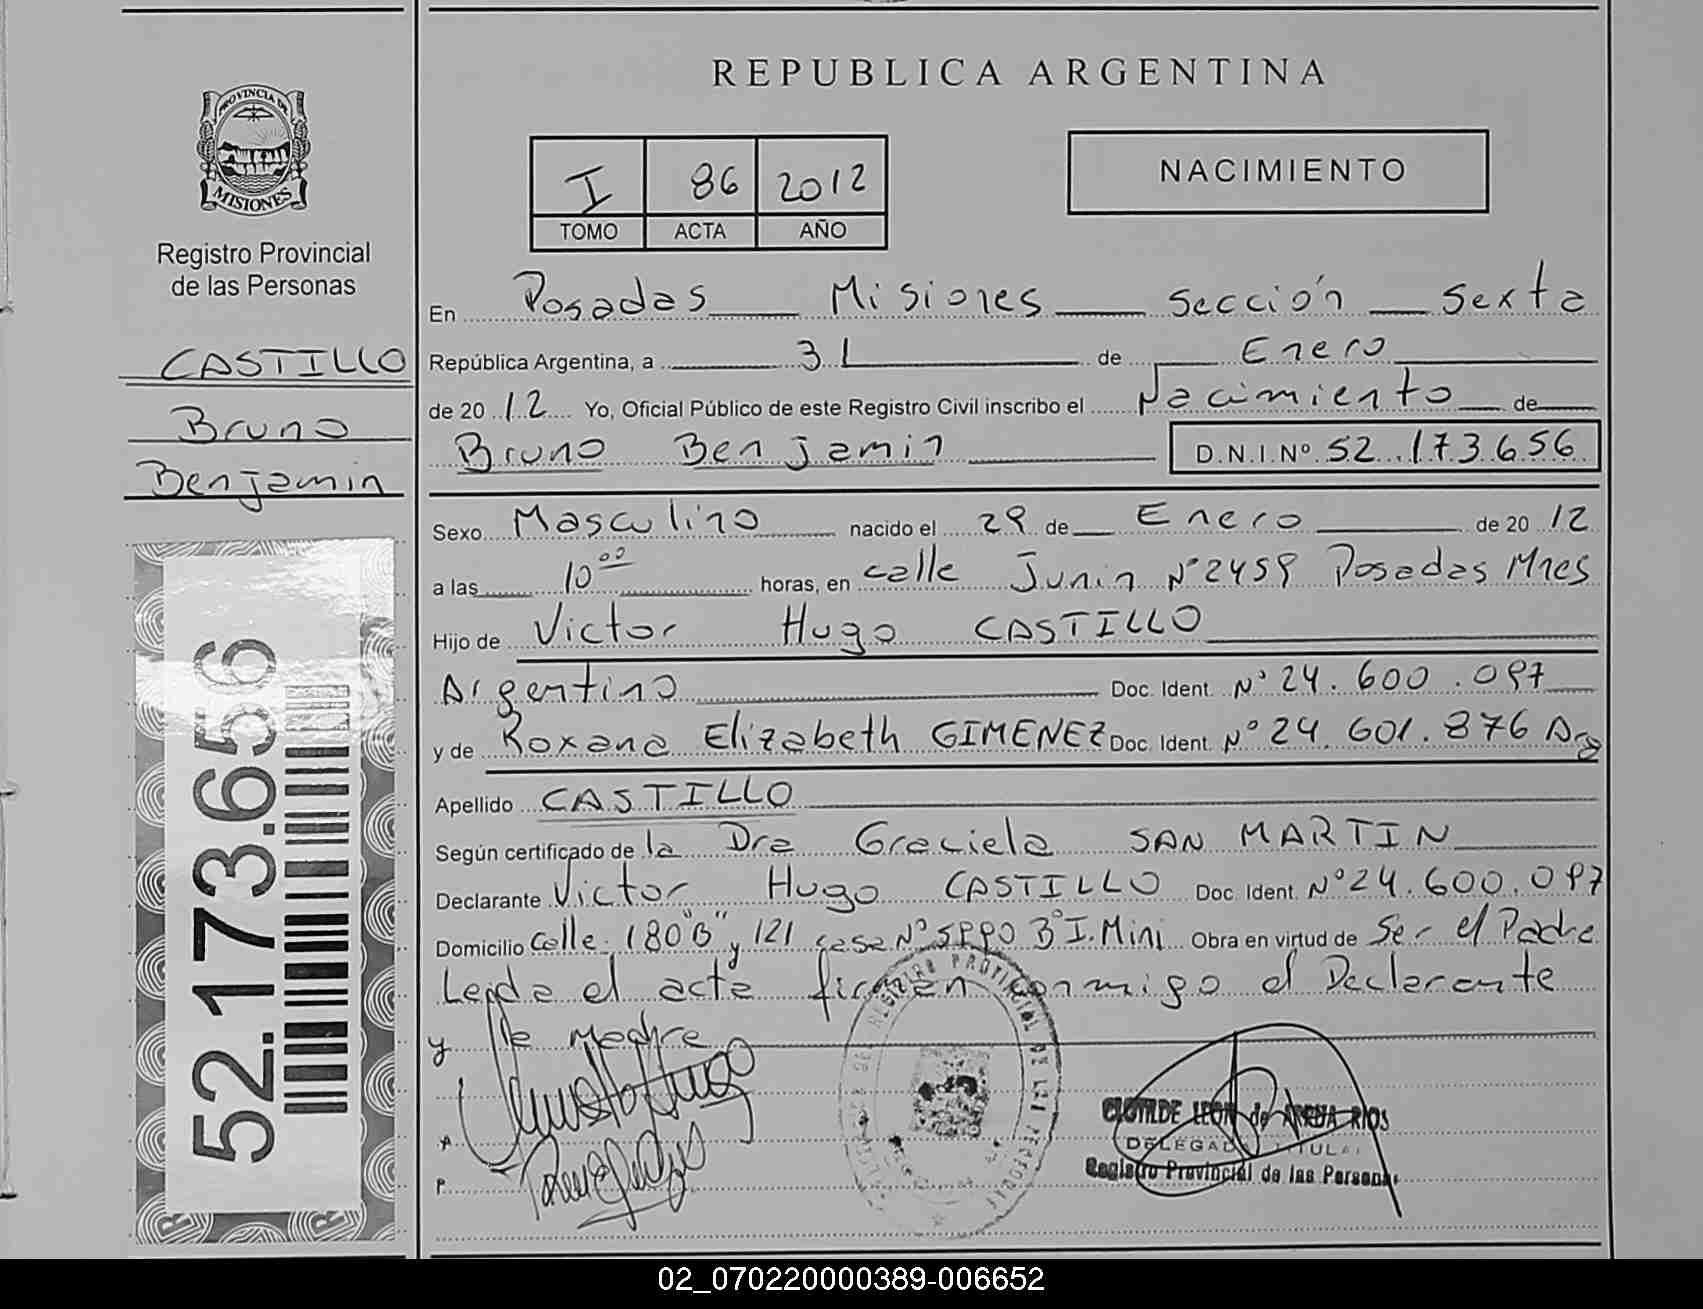 PROVINCIA DE
MISIONES
Registro Provincial
de las Personas
CASTILLO
Bruno
Benjamin
52.173.656
REPUBLICA ARGENTINA
I 86 2012
TOMO ACTA AÑO
NACIMIENTO
En Posadas Misiones Sección Sexta
República Argentina, a 31 de Enero
de 2012 Yo, Oficial Público de este Registro Civil inscribo el Nacimiento de
Bruno Benjamin D.N.I.Nº 52.173.656
Sexo Masculino nacido el 29 de Enero de 2012
a las 10 00 horas, en calle Junin Nº 2459 Posadas Mnes
Hijo de Victor Hugo CASTILLO
Argentino Doc. Ident. Nº 24.600.097
y de Roxana Elizabeth GIMENEZ Doc. Ident. Nº 24.601.876 Arg
Apellido CASTILLO
Según certificado de la Dra Graciela SAN MARTIN
Declarante Victor Hugo CASTILLO Doc. Ident. Nº 24.600.097
Domicilio Calle 180"B" y 121 casa Nº 5990 Bº I. Mini Obra en virtud de Ser el Padre
Leida el acta firman conmigo el Declarante
y la madre
CLOTILDE LEON de ARENA RIOS
DELEGADA TITULAR
Registro Provincial de las Personas
02_070220000389-006652